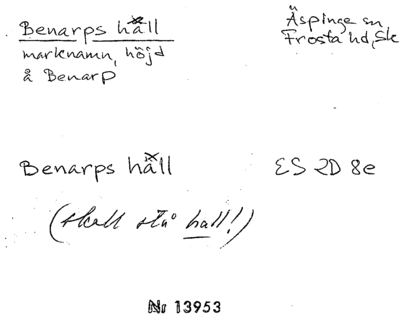 Benarps håll
Äspinge sn
marknamn, höjd
Frosta hd, Sk
å Benarp
Benarps håll
ES 2D 8e
(skall stå hall!)
Nr 13953